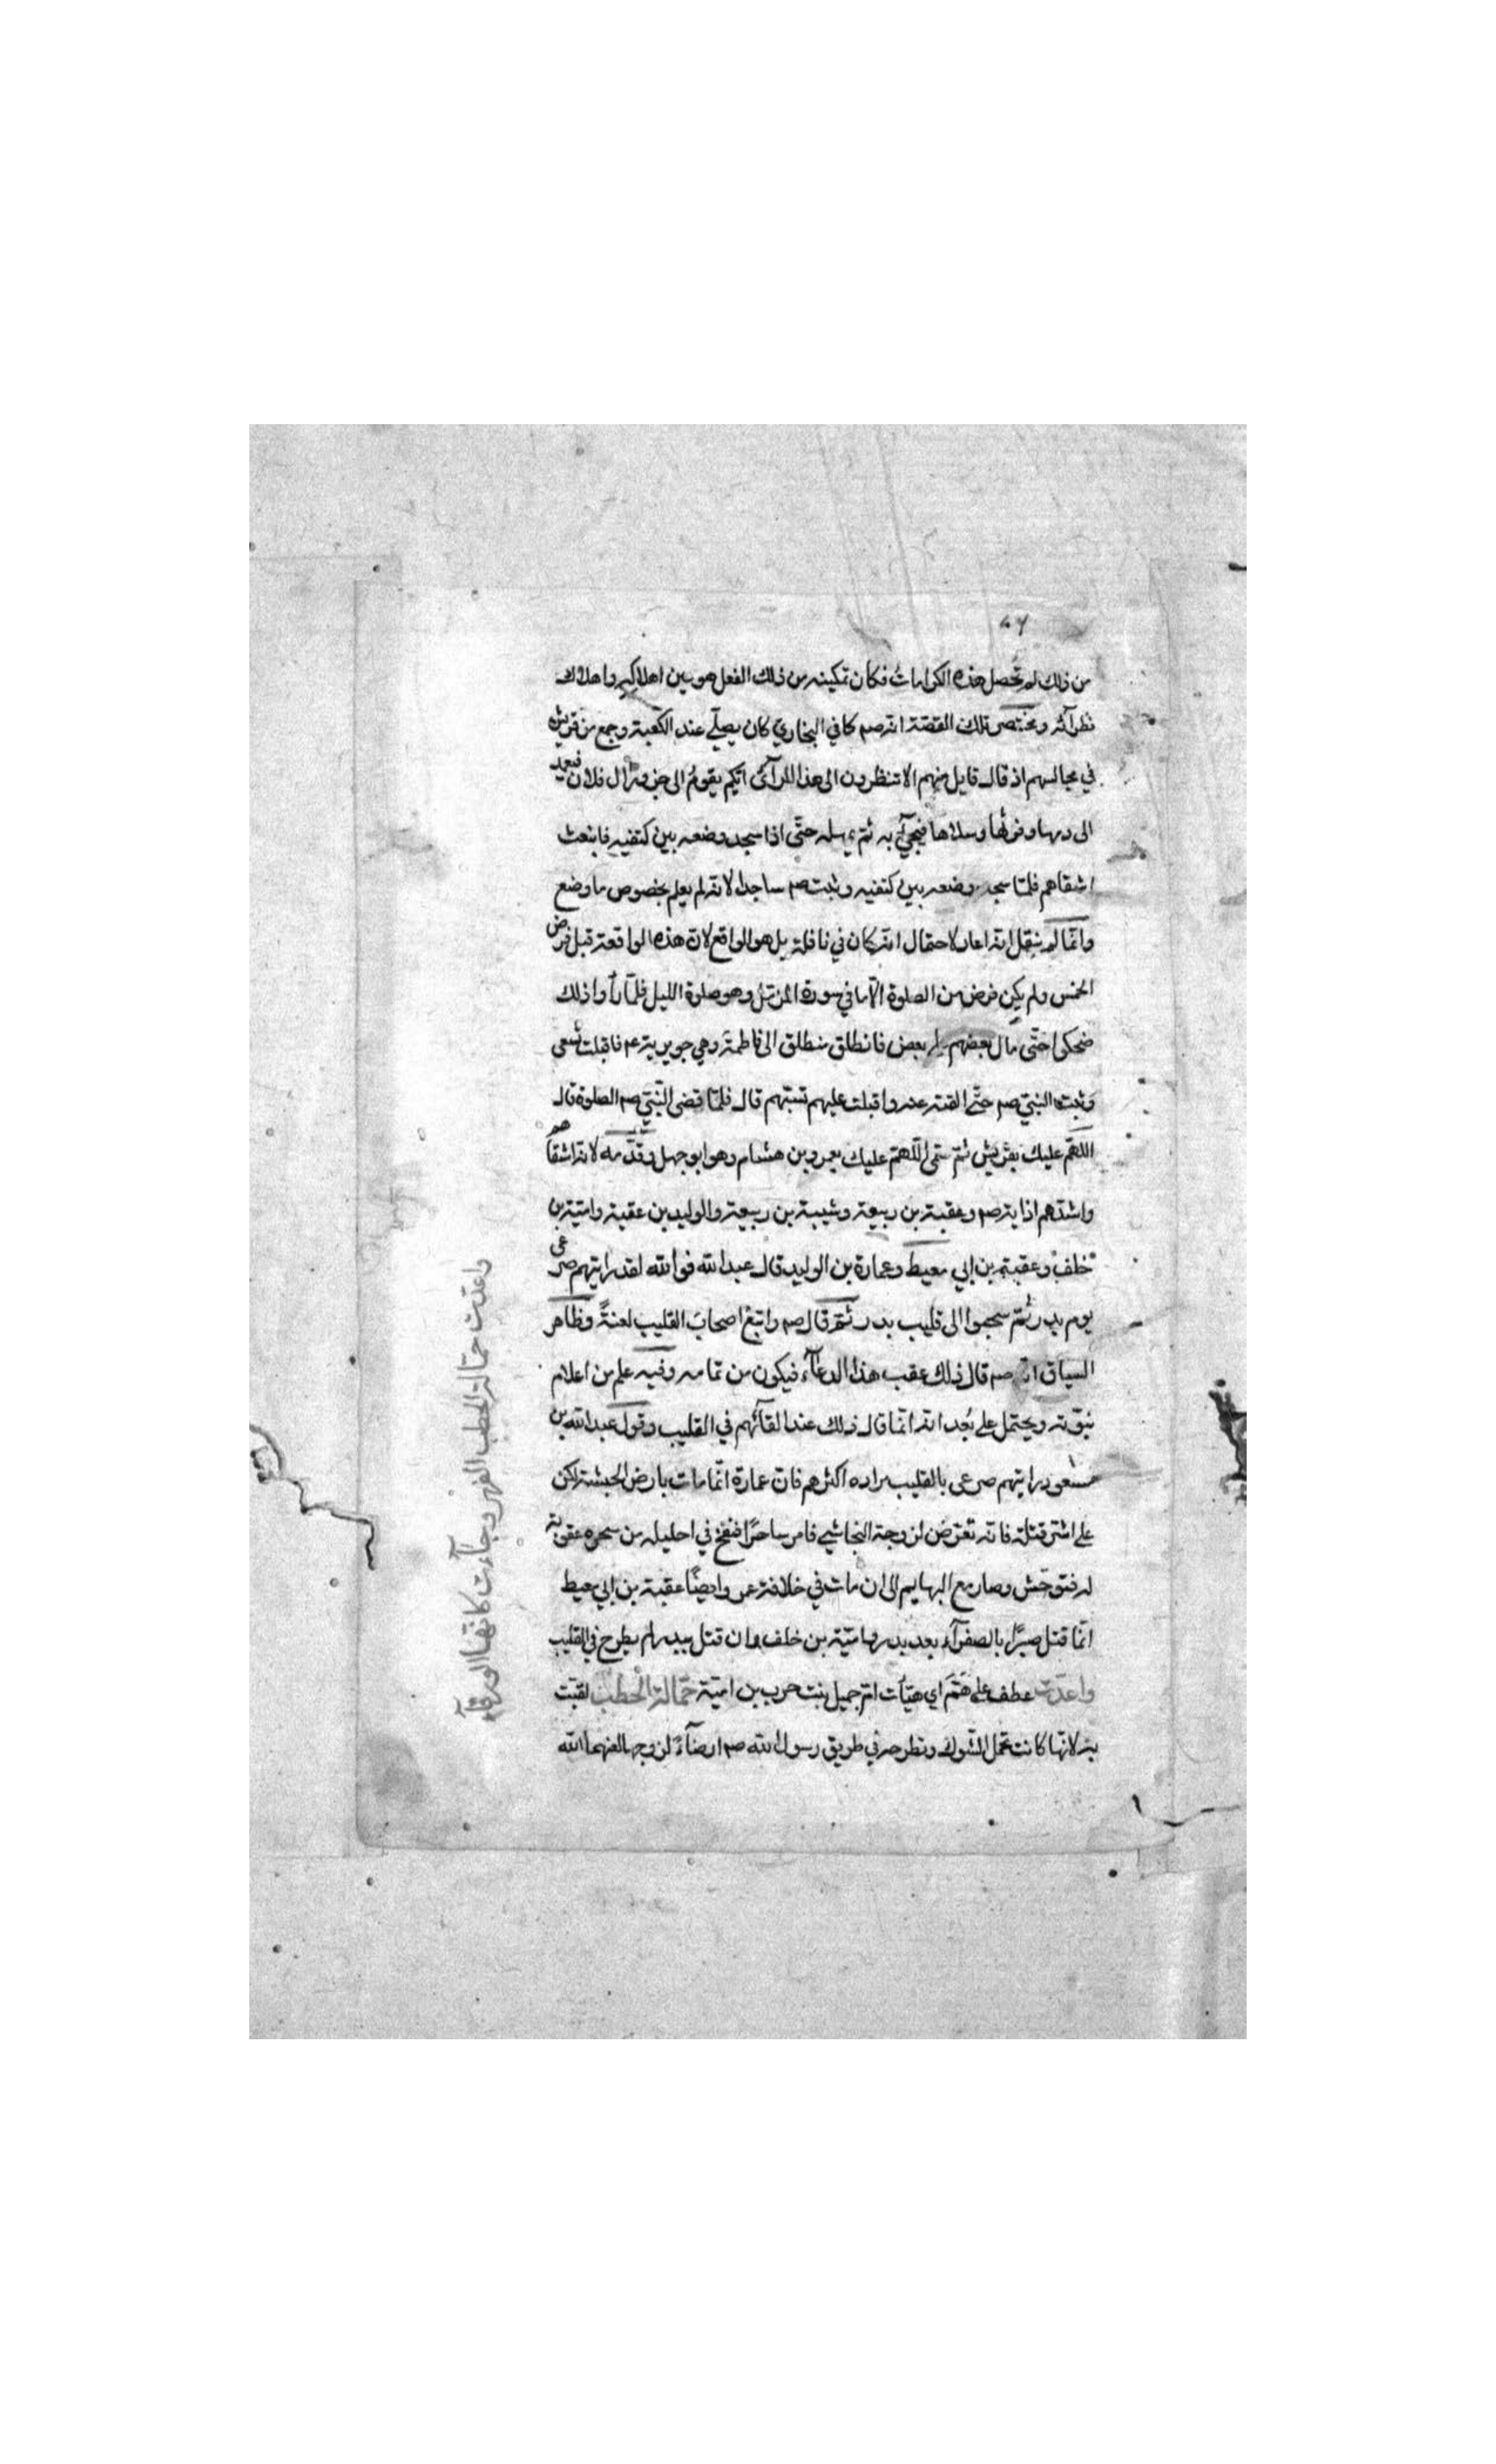 من ذلك لم تحصل هذه الكرامات فكان تمكينه من ذلك الفعل هو بين اهلاكه واهلاك
نظرائه ومختص تلك القصة انه صم كما في البخاري كان يصلّي عند الكعبة وجمع من قريش
في مجالسهم اذ قال قايل منهم الا تنظرون الى هذا المرآئى ايّكم يقوم الى جزور ال فلان فيعمد
الى دمها وفرثها وسلاها فيجيء به ثم يمهله حتّى اذا سجد وضعه بين كتفيه فانبعث
اشقاهم فلمّا سجد وضعه بين كتفيه وثبت صم ساجدا لانه لم يعلم بخصوص ما وضع
وانّما لم ينقل انه اعاد لاحتمال انه كان في نافلة بل هو الواقع لان هذه الواقعة قبل فرض
الخمس ولم يكن فرض من الصلوة الّا ما في سورة المزمّل وهو صلوة الليل فلمّا رأوا ذلك
ضحكوا حتّى مال بعضهم على بعض فانطلق منطلق الى فاطمة وهي جويرية ع م فاقبلت تسعى
وثبت النبيّ صم حتّى القته عنه واقبلت عليهم تسبّهم قال فلمّا قضى النّبيّ صم الصلوة قال
اللهمّ عليك بقريش ثمّ سمّى اللّهمّ عليك بعمرو بن هشام وهو ابو جهل وقدّمه لانه اشقاهم
واشدّهم اذاية له صم وعقبة بن ربيعة وشيبة بن ربيعة والوليد بن عقبة واميّة بن
خلف وعقبة بن ابي معيط وعمارة بن الوليد قال عبد الله فوالله لقد رايتهم صرعى
يوم بدر ثمّ سحبوا الى قليب بدر ثمّ قال صم واتبع اصحاب القليب لعنةً وظاهر
السياق انه صم قال ذلك عقب هذا الدعآء فيكون من تمامه وفيه علم من اعلام
نبوّته ويحتمل على بُعد انه انّما قال ذلك عند القآئهم في القليب وقول عبد الله بن
مسعود رايتهم صرعى بالقليب مراده اكثرهم فان عمارة انّما مات بارض الحبشة لكن
على اشرّ قتلة فانّه تعرّض لزوجة النجاشي فامر ساحرًا فنفخ في احليله من سحره عقوبة
له فتوحّش وصار مع البهايم الى ان مات في خلافة عمر وايضًا عقبة بن ابي معيط
انّما قتل صبرًا بالصفرآء بعد بدر واميّة بن خلف وان قتل ببدر لم يطرح في القليب
واعدّت عطف على همّم اي هيّأت امّ جميل بنت حرب بن اميّة حمّالة الحطب لقبّت
به لانّها كانت تحمل الشوك وتطرحه في طريق رسول الله صم ارضآءً لزوجها لعنهما الله
واعدّت حمّالة الحطب الفهر وجآءت كانها الورقآء